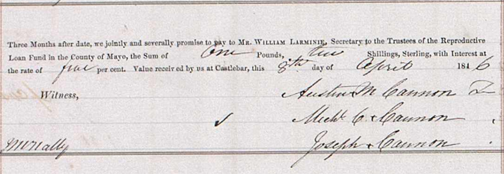 Three Months after date, we jointly and severally promise to pay to MR. WILLIAM LARMINIE, Secretary to the Trustees of the Reproductive
Loan Fund in the County of Mayo, the Sum of One Pounds, Shillings, Sterling, with Interest at
the rate of five per cent. Value received by us at Castlebar, this 8th day of April 1846
Witness, Austin M Cannon
Michl C Cannon
McNally Joseph Cannon